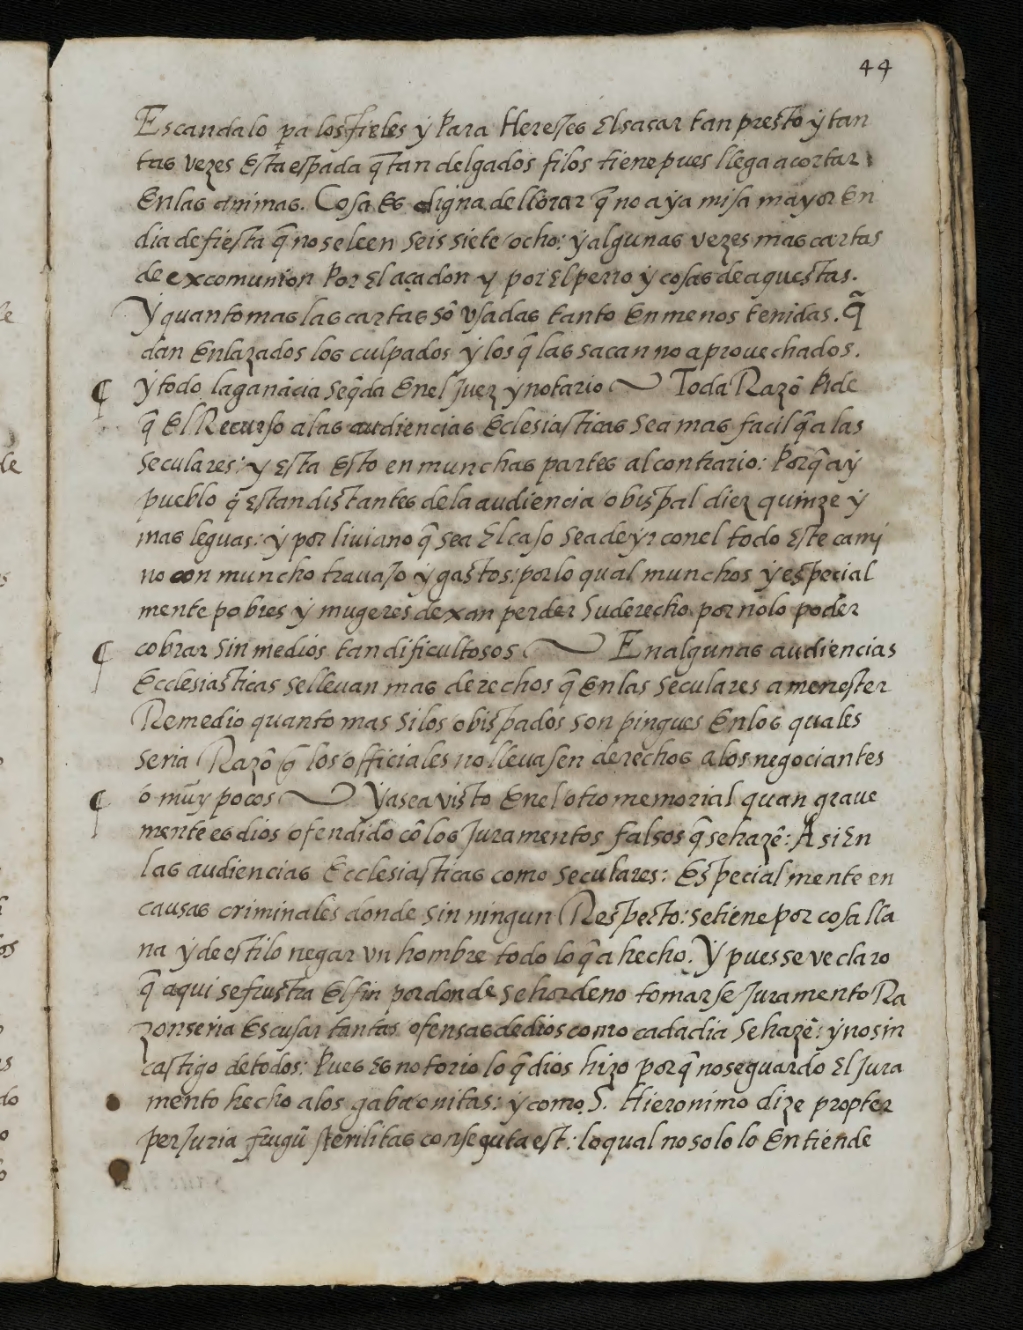 44
Escandalo pa los fieles y para Hereges El sacar tan presto y tan
tas vezes Esta espada q̃ tan delgados filos tiene pues llega a cortar
En las animas. Cosa Es digna de llorar q̃ no aya misa mayor En
dia de fiesta q̃ no se leen seis siete ocho: y algunas vezes mas cartas
de excomunion por El açadon y por El perro y cosas de aquestas.
Y quanto mas las cartas sõ vsadas tanto En menos tenidas. q̃
dan Enlazados los culpados y los q̃ las sacan no aprouechados.
¶ y todo la ganãcia seq̃da En el juez y notario Toda Razõ pide
q̃ El Recurso a las audiencias Eclesiasticas sea mas facil q̃ a las
seculares: y Esta Esto en munchas partes al contrario: porq̃ ay
pueblo q̃ Estan distantes de la audiencia obispal diez quinze y
mas leguas: y por liuiano q̃ sea El caso sea de yr con el todo Este cami
no con muncho trauajo y gastos: por lo qual munchos y especial
mente pobres y mugeres dexan perder su derecho por nolo poder
¶ cobrar sin medios tan dificultosos En algunas audiencias
Ecclesiasticas se lleuan mas derechos q̃ En las seculares a menester
Remedio quanto mas si los obispados son pingues En los quales
seria Razõ q̃ los officiales no lleuasen derechos a los negociantes
¶ o muy pocos Ya sea visto En el otro memorial quan graue
mente es dios ofendido cõ los Juramentos falsos q̃ se hazẽ: Asi En
las audiencias Ecclesiasticas como seculares: Especialmente en
causas criminales donde sin ningun Respecto: se tiene por cosa lla
na y de estilo negar vn hombre todo lo q̃ a hecho. Y pues se ve claro
q̃ aqui se frustra El fin por donde se hordeno tomarse Juramento Ra
zon seria Escusar tantas ofensas de dios como cada dia se hazẽ: y no sin
castigo de todos: pues Es notorio lo q̃ dios hizo porq̃ no se guardo El Jura
mento hecho a los gabaonitas: y como S. Hieronimo dize propter
perJuria frugũ sterilitas consequta est: lo qual no solo lo Entiende